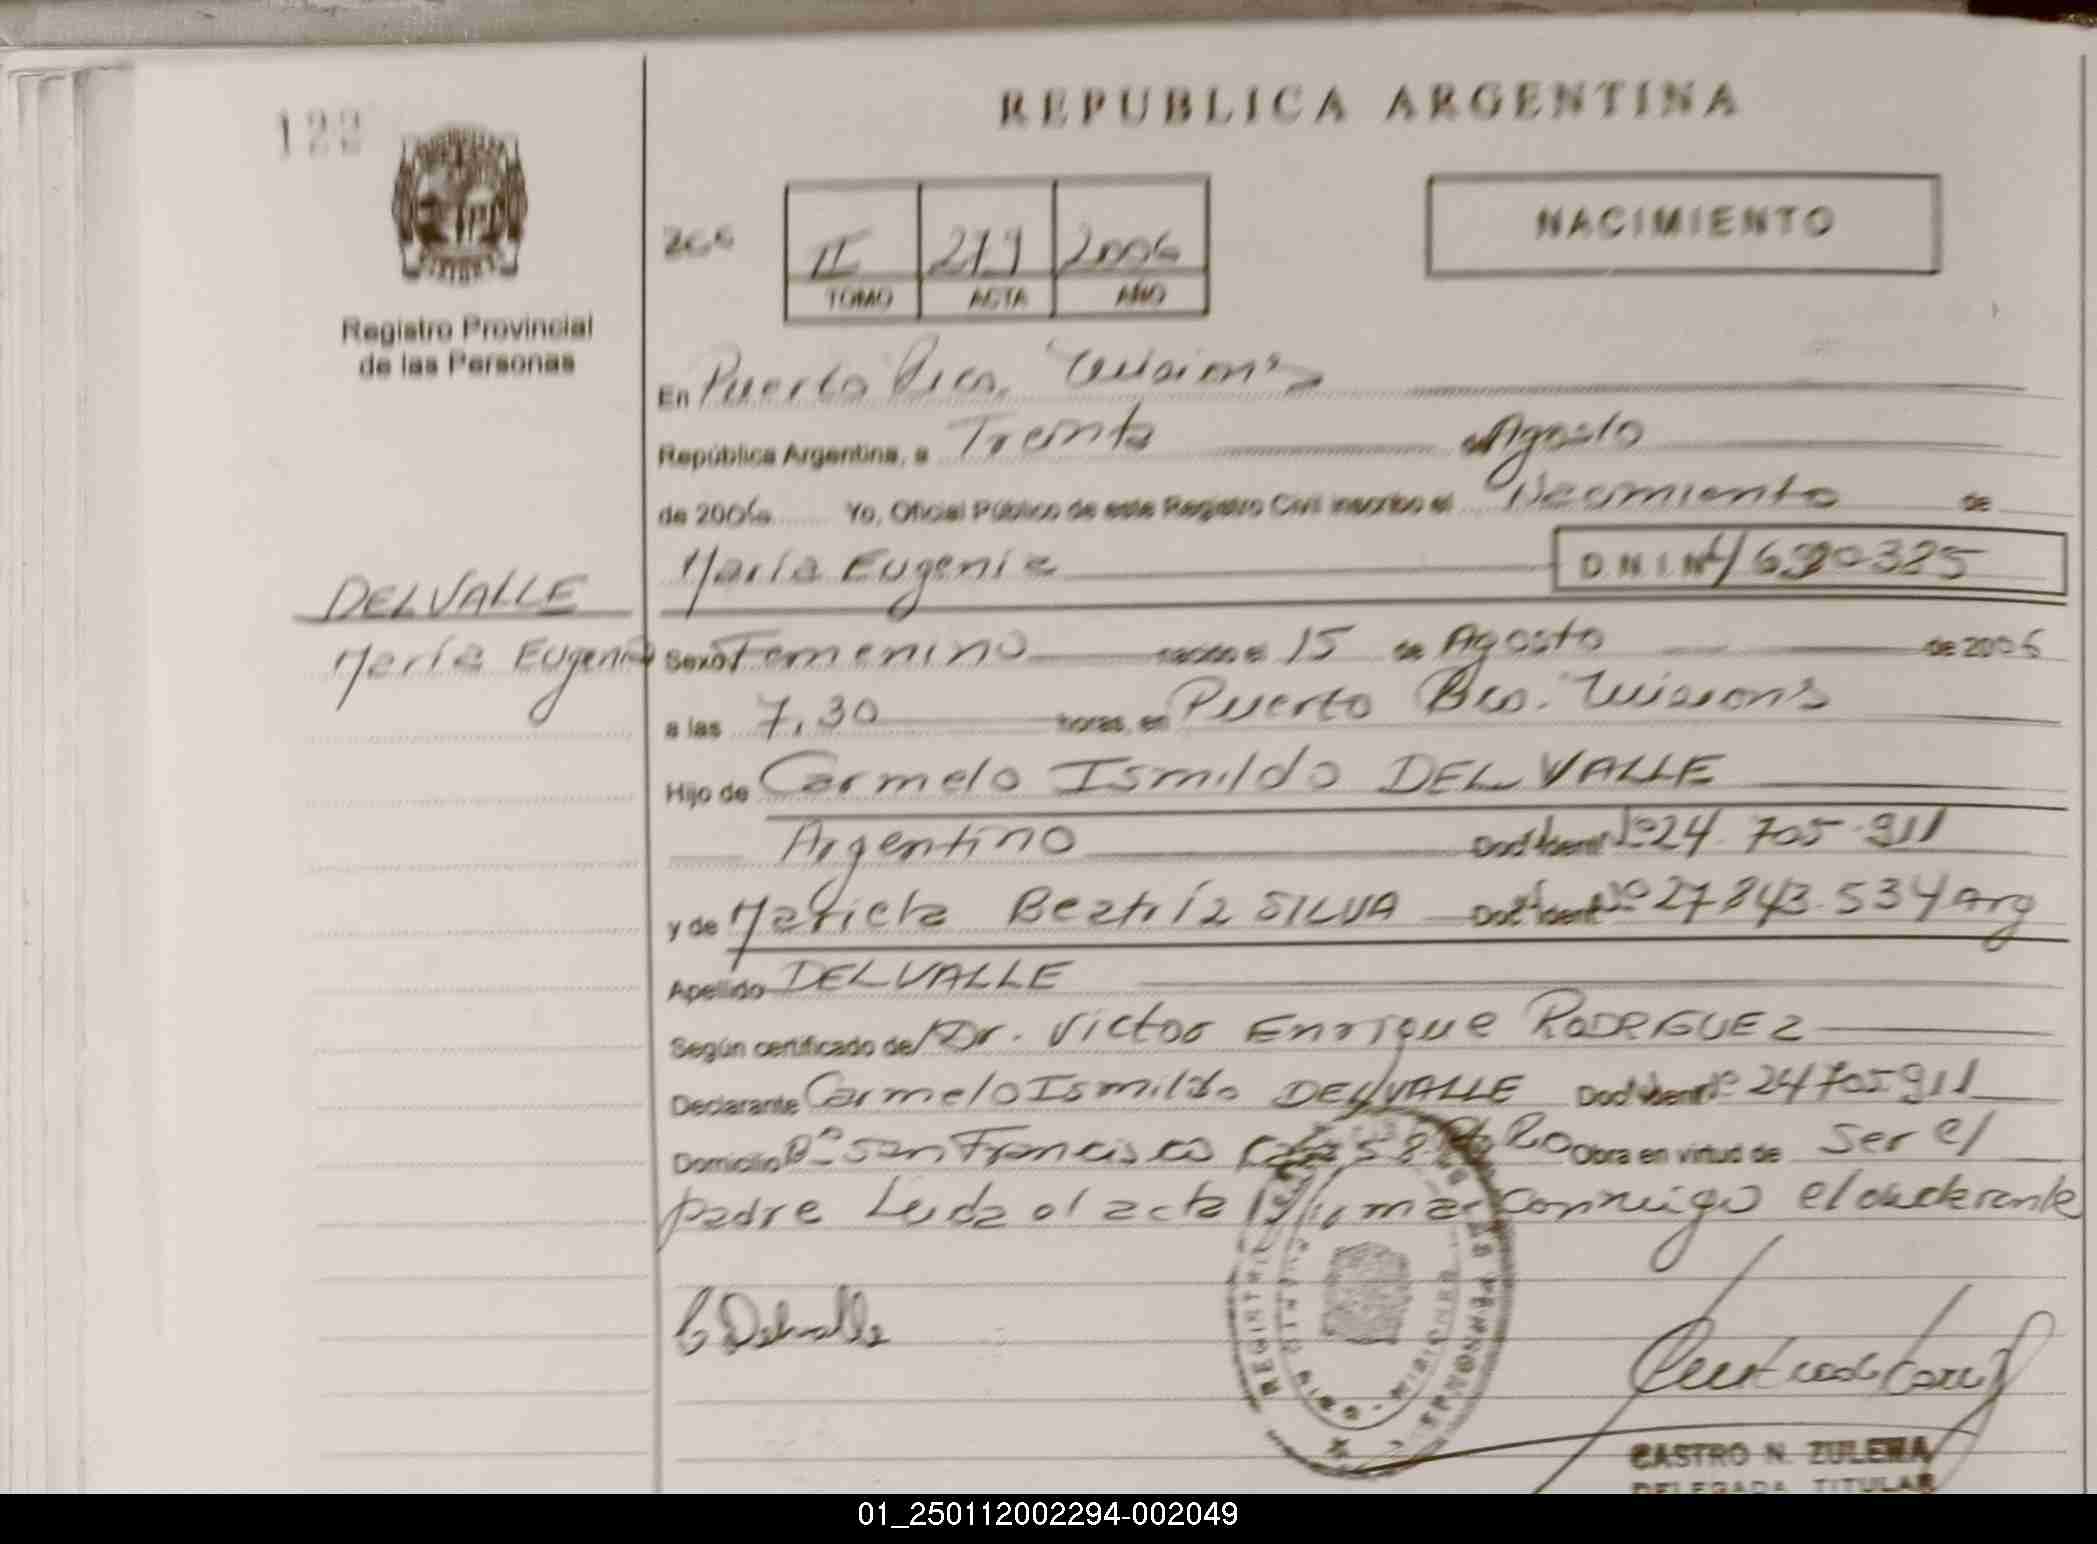 REPUBLICA ARGENTINA
122
NACIMIENTO
II 2006
TOMO ACTA AÑO
Registro Provincial
de las Personas
En Puerto Rico, Misiones
República Argentina, a Treinta de Agosto
de 2006 Yo, Oficial Público de este Registro Civil inscribo el Nacimiento de
María Eugenia D.N.I. Nº
DELVALLE
María Eugenia
Sexo Femenino nacido el 15 de Agosto de 2006
a las 7,30 horas, en Puerto Rico. Misiones
Hijo de Carmelo Ismildo DELVALLE
Argentino Doc Ident Nº 24.705.911
y de Mariela Beatríz SILVA Doc Ident Nº 27.843.534 Arg
Apellido DELVALLE
Según certificado de Dr. Victor Enrique RODRIGUEZ
Declarante Carmelo Ismildo DELVALLE Doc Ident Nº 24705911
Domicilio Bº San Francisco Casa 58 Pto Rico Obra en virtud de Ser el
padre Leida el acta firma conmigo el declarante
C Delvalle
REGISTRO LAS PERSONAS
MISIONES
CASTRO N. ZULEMA
DELEGADA TITULAR
01_250112002294-002049